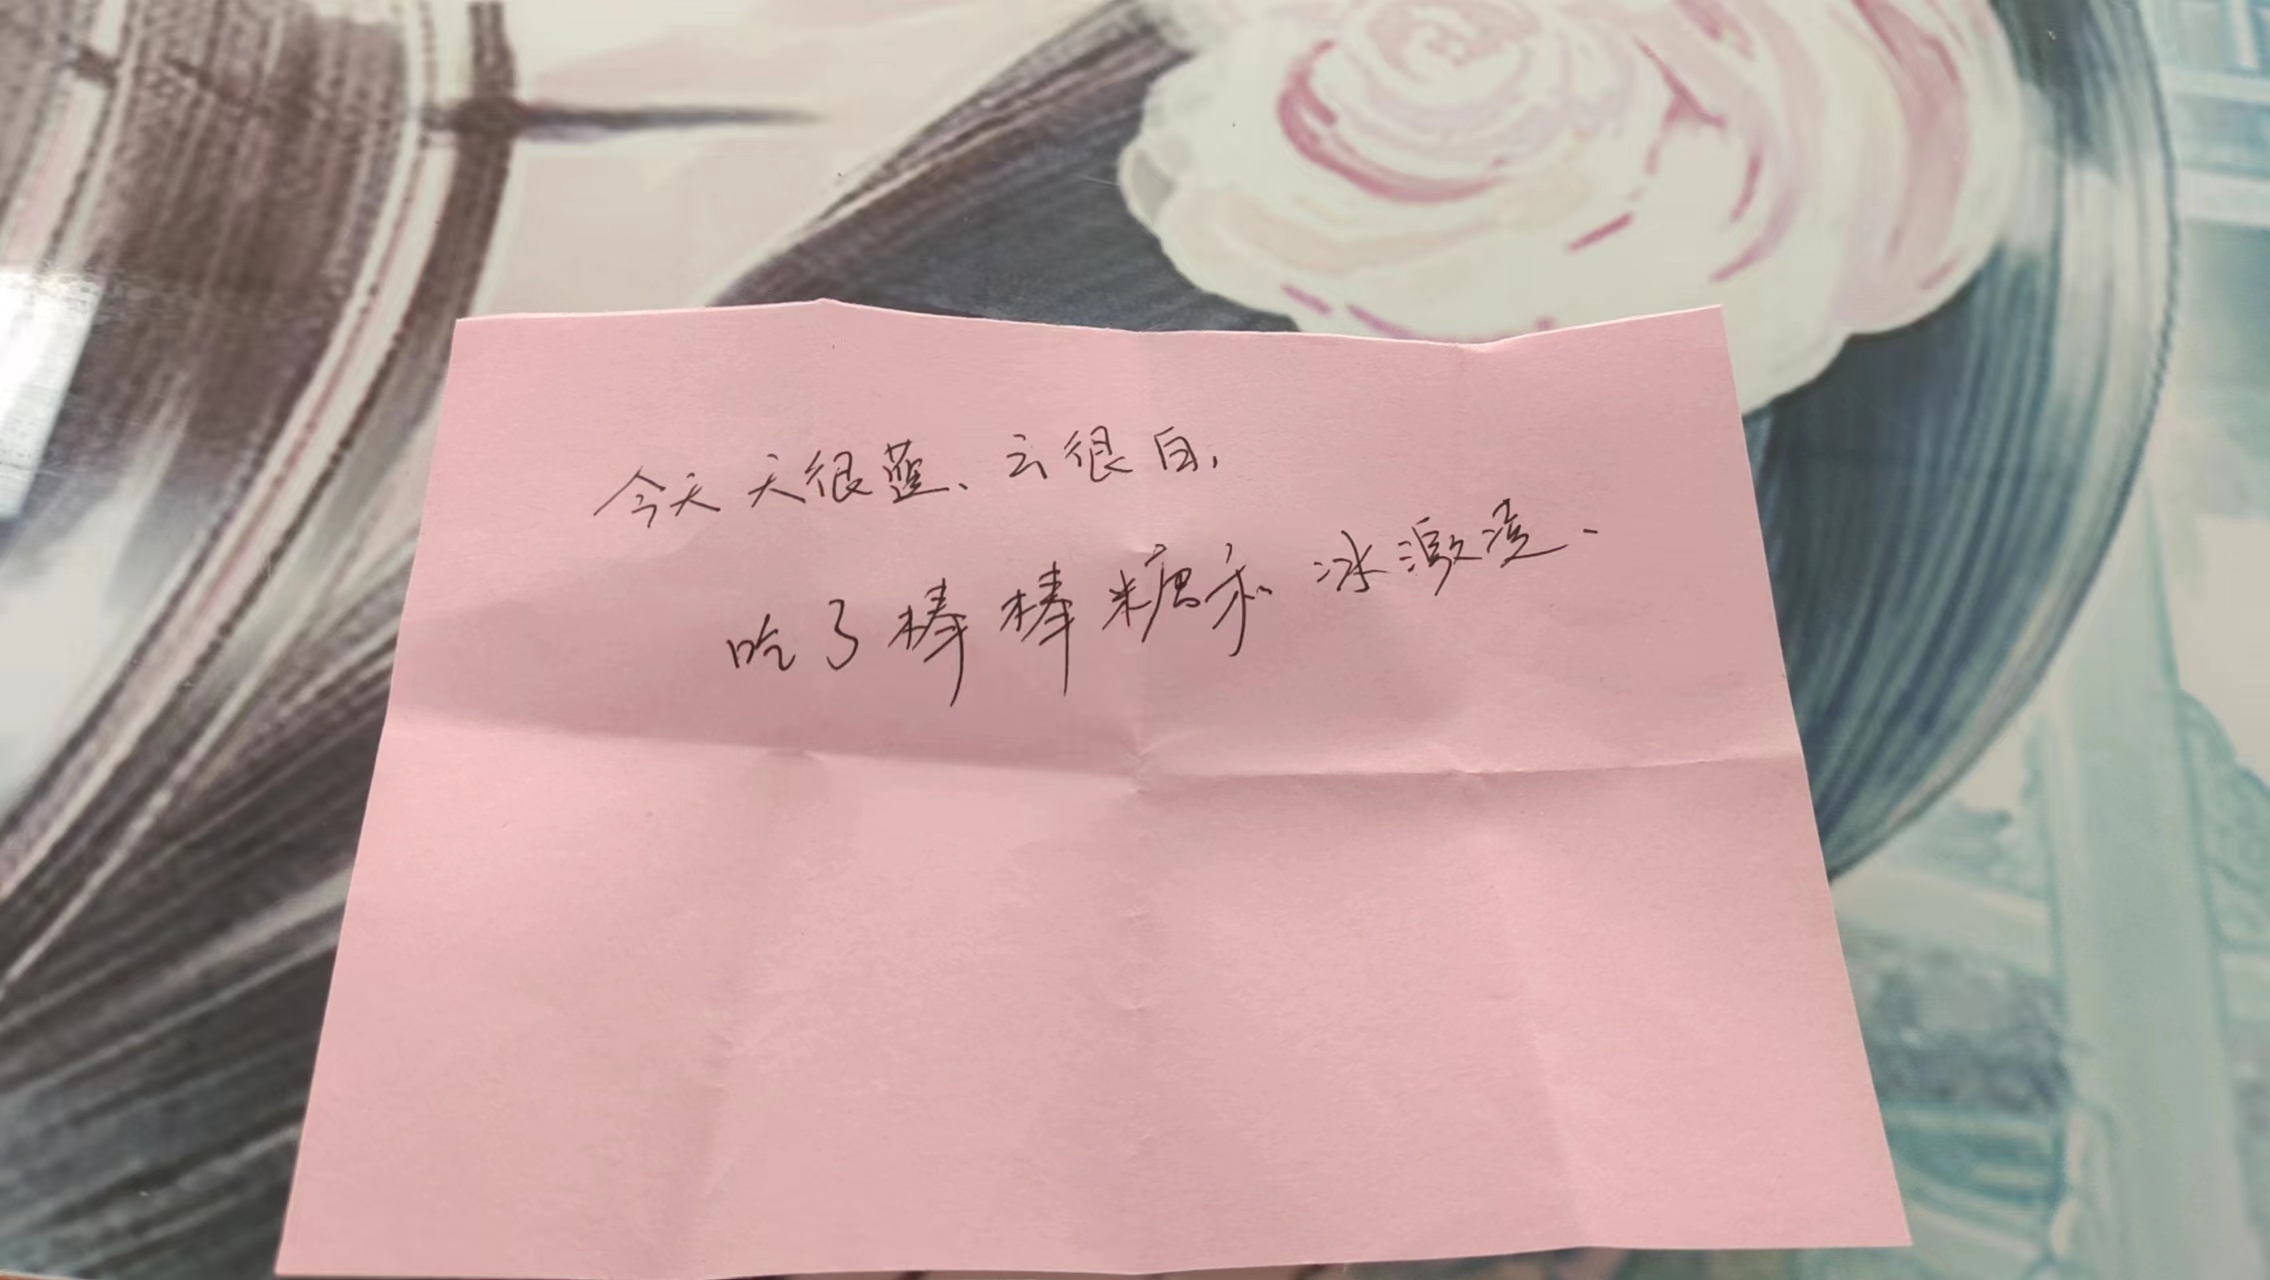 今天天很蓝、云很白，
吃了棒棒糖和冰激凌、